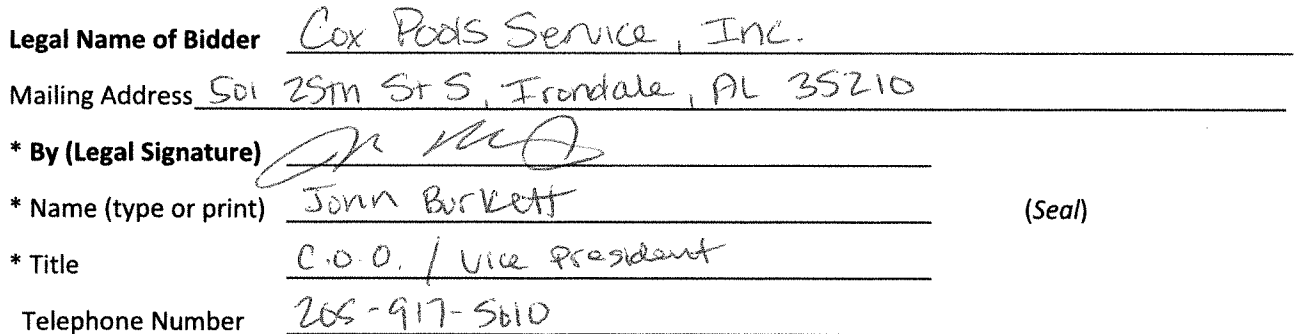 Legal Name of Bidder Cox Pools Service, Inc.
Mailing Address 501 25th St S, Irondale, AL 35210
* By (Legal Signature)
* Name (type or print) John Burkett (Seal)
* Title C.O.O. / Vice President
Telephone Number 205-917-5610